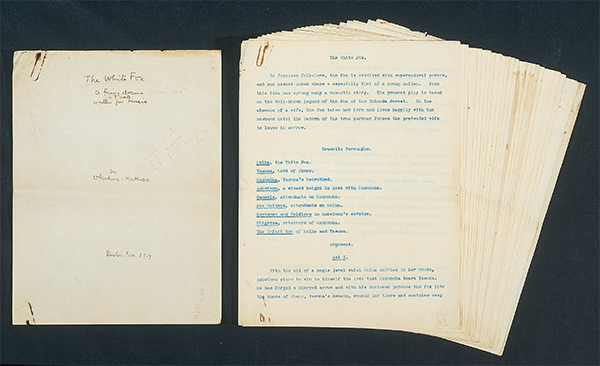 The White Fox.
A fairy drama
in 3 acts
written for music
by
Okakura-Kakuzo
Boston Feb. 1913
The White Fox.
In Japanese folk-lore, the fox is credited with supernatural powers,
and can assume human shape - especially that of a young maiden. From
this idea has sprung many a romantic story. The present play is based
on the well-known legend of the Fox of the Shinoda Forest. In the
absence of a wife, the fox takes her form and lives happily with the
husband until the return of the true partner forces the pretended wife
to leave in sorrow.
Dramatis Personages.
Kolha, the White Fox.
Yasuna, Lord of Abeno.
Kuzunoha, Yasuna's betrothed.
a wizard knight in love with Kuzunoha.
Damsels, attendants on Kuzunoha.
Fox Maidens, attendants on Kolha.
Huntsmen and Soldiers in service.
Pilgrims, retainers of Kuzunoha.
The Infant Son of Kolha and Yasuna.
Argument.
Act I.
With the aid of a magic jewel which Kolha carries in her mouth,
plans to win to himself the love that Kuzunoha bears Yasuna.
He has forged a charmed arrow and with his huntsmen pursues the fox into
the Moors of Abeno, Yasuna's domain, wounds her there and snatches away